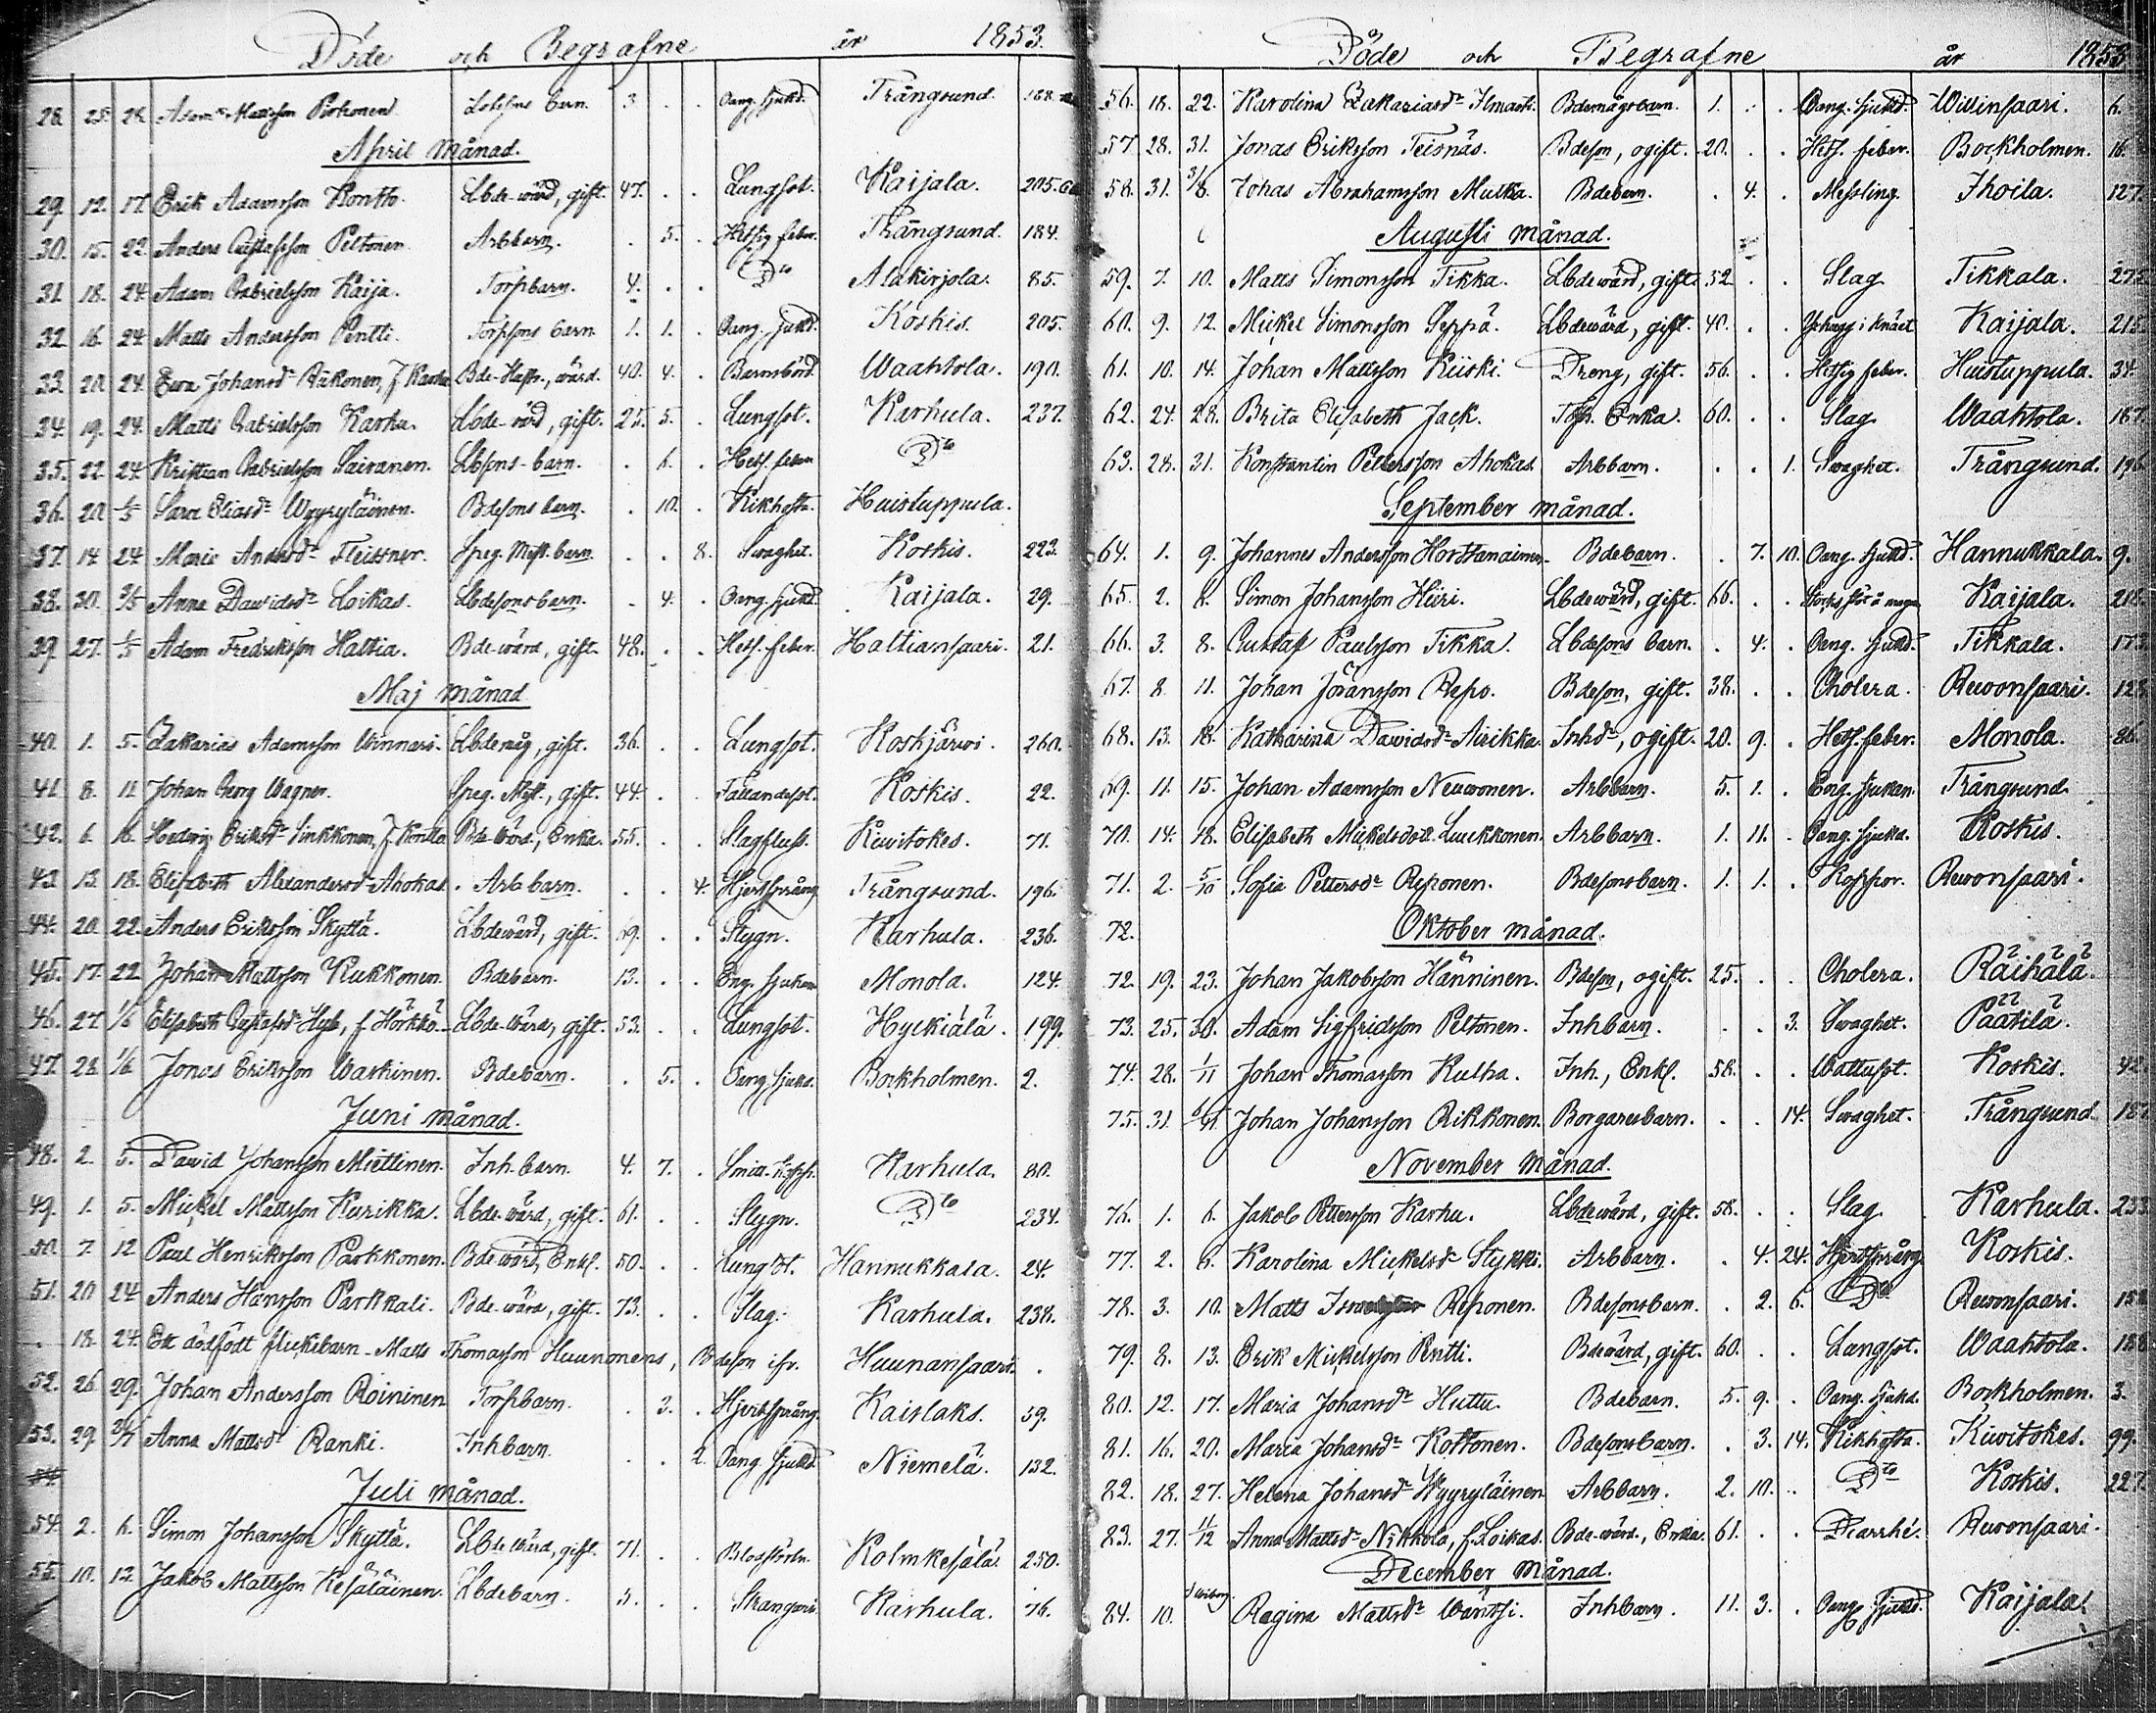 Döde och Begrafne år 1853.
28. 25. 28. Adam Mattsson Porkonen Lbsons barn. 3. . . Oang. sjukd. Trångsund. 188.
April månad.
29. 12. 17. Erik Adamsson Kontto. Lbde-wärd, gift. 47. . . Lungsot. Kaijala. 205.
30. 15. 22. Anders Gustafsson Peltonen. Arbbarn. . 5. . Hetsig feber. Trångsund. 184.
31. 18. 24. Adam Gabrielsson Kaija. Torpbarn. 4. . . Dto Alakirjola. 85.
32. 16. 24. Matts Andersson Pentti. Torpsons barn. 1. 1. . Oang. sjukd. Koskis. 205.
33. 20. 24. Ewa Johansdr Räkonen, f. Karhu Bde-Hustr., wärd. 40. 4. . Barnsbörd. Waahtola. 190.
34. 19. 24. Matts Gabrielsson Karhu. Lbde-wärd, gift. 25. 5. . Lungsot. Karhula. 237.
35. 22. 24. Kristian Gabrielsson Sairanen. Lbsons-barn. . 6. . Hets. feber Dto
36. 20. 1/5 Sara Eliasdr Wyyryläinen. Bdesons barn. . 10. . Kikhosta. Huistuppula.
37. 14. 24. Maria Andersdr Fleissner. Speg. Mest. barn. . . 8. Swaghet. Koskis. 223.
38. 30. 3/5 Anna Dawidsdr Loikas. Lbdesonsbarn. . 4. . Oang. sjukd. Kaijala. 29.
39. 27. 1/5 Adam Fredriksson Hattia. Bde-wärd, gift. 48. . . Hets. feber. Haltiansaari. 21.
Maj månad
40. 1. 5. Zakarias Adamsson Winnari. Lbdemåg, gift. 36. . . Lungsot. Koskjärwi. 260.
41. 8. 11. Johan Georg Wagner. Speg. Mest., gift. 44. . . Fallandesot. Koskis. 22.
42. 6. 16. Hedwig Eriksdr Sinkkonen, f. Kontto. Bde-wärd., Enka. 55. . . Slagfluss. Kiwitokes. 71.
43. 13. 18. Elisabeth Alexandersdr Ahokas. Arbbarn. . . 4. Hjertsprång Trångsund. 196.
44. 20. 22. Anders Eriksson Skyttä. Lbdewärd, gift. 69. . . Stygn. Karhula. 236.
45. 17. 22. Johan Mattsson Kukkonen. Bdebarn. 13. . . Eng. sjukan Monola. 124.
46. 27. 1/6 Elisabeth Gustafsdr Hyle, f. Hörkkö. Lbde-wärd, gift. 53. . . Lungsot. Hyckiälä. 199.
47. 28. 1/6 Jonas Eriksson Waskinen. Bdebarn. . 5. . Oang. sjukd. Bockholmen. 2.
Juni månad.
48. 2. 5. Dawid Johansson Miettinen. Inh. barn. 4. 7. . Smitt-kopp. Karhula. 80.
49. 1. 5. Mickel Mattsson Kurikka. Lbde-wärd, gift. 61. . . Stygn. Dto 234.
50. 7. 12. Paul Henriksson Parkkonen. Bde-wärd, Enkl. 50. . . Lungsot. Hannukkala. 24.
51. 20. 24. Anders Hansson Parkkali. Bde-wärd, gift. 73. . . Slag. Karhula. 238.
. 18. 24. Ett dödfödt flickebarn - Matts Thomasson Huunonens, Bdeson ifr. Huunansaari.
52. 26. 29. Johan Andersson Roininen. Torpbarn. . 3. . Hjertsprång. Kaislaks. 39.
53. 29. 3/7 Anna Mattsdr Ranki. Inhbarn. . . 2. Oang. sjukd. Niemelä. 132.
Juli månad.
54. 2. 6. Simon Johansson Skyttä. Lbde wärd, gift. 71. . . Blodstörtn. Kolmkesälä. 250.
55. 10. 13. Jakob Mattsson Kesäläinen. Lbdebarn. 5. . . Stranguri. Karhula. 76.
Döde och Begrafne år 1853
56. 18. 22. Karolina Zakariasdr Ilmasti. Bdemågsbarn. 1. . . Oang. sjukd. Willinsaari. 6.
57. 28. 31. Jonas Eriksson Teisnäs. Bdeson, ogift. 20. . . Hets. feber. Bockholmen. 16.
58. 31. 3/8. Johas Abrahamsson Mulka. Bdebarn. . 4. . Messling. Ihoila. 127.
Augusti månad.
59. 7. 10. Matts Simonsson Tikka. Lbdewärd, gift. 52. . . Slag Tikkala. 275
60. 9. 12. Mickel Simonsson Seppä. Lbdewärd, gift. 40. . . Yxhugg i knäet Kaijala. 215
61. 10. 14. Johan Mattsson Kiiski. Dreng, gift. 56. . . Hetsig feber. Huistuppula. 34.
62. 24. 28. Brita Elisabeth Jack. Tfs. Enka. 60. . . Slag Waahtola. 167.
63. 28. 31. Konstantin Pettersson Ahokas. Arbbarn. . . 1. Swaghet. Trångsund. 196
September månad.
64. 1. 9. Johannes Andersson Horttanainen. Bdebarn. . 7. 10. Oang. sjukd. Hannukkala. 9.
65. 2. 6. Simon Johansson Hiiri. Lbdewärd, gift. 66. . . Kaijala. 218.
66. 3. 8. Gustaf Paulsson Tikka. Lbdesons barn. . 4. . Oang. sjukd. Tikkala. 173.
67. 8. 11. Johan Göransson Repo. Bdeson, gift. 38. . . Cholera. Rewonsaari. 128.
68. 13. 18. Katharina Dawidsdr Airikka. Inhdr, ogift. 20. 9. . Hets. feber. Monola. 86.
69. 11. 15. Johan Adamsson Neuwonen. Arbbarn. 5. 1. . Eng. sjukan. Trångsund.
70. 14. 18. Elisabeth Mickelsdott. Luukkonen. Arbbarn. 1. 11. . Oang. sjukd. Koskis.
71. 2. 5/10 Sofia Pettersdr Reponen. Bdesonsbarn. 1. 1. . Koppor. Rewonsaari.
72. Oktober månad.
72. 19. 23. Johan Jakobsson Hänninen. Bdeson, ogift. 25. . . Cholera. Räihälä.
73. 25. 30. Adam Sigfridsson Peltonen. Inhbarn. . . 3. Swaghet. Päätilä.
74. 28. 1/11 Johan Thomasson Kulha. Inh., Enkl. 58. . . Wattusot. Koskis. 42
75. 31. 6/11. Johan Johansson Rikkonen. Borgaresbarn. . . 14. Swaghet. Trångsund. 187
November månad.
76. 1. 6. Jakob Pettersson Karhu. Lbdewärd, gift. 58. . . Slag Karhula. 233
77. 2. 6. Karolina Mickelsdr Stykki. Arbbarn. . 4. 24. Hjertsprång. Koskis.
78. 3. 10. Matts Reponen. Bdesonsbarn. . 2. 6. Dto Rewonsaari. 152
79. 8. 13. Erik Mickelsson Pentti. Bdewärd, gift. 60. . . Lungsot. Waahtola. 188
80. 12. 17. Maria Johansdr Huttu. Bdebarn. 5. 9. . Oang. sjukd. Bockholmen. 3.
81. 16. 20. Maria Johansdr Kottonen. Bdesonsbarn. . 3. 14. Kikhosta. Kiwitokes. 99.
82. 18. 27. Helena Johansdr Wyyryläinen Arbbarn. 2. 10. . Dto Koskis. 227
83. 27. 11/12 Anna Mattsdr Nikkola, f. Loikas. Bde-wärd., Enka. 61. . . Diarrhé. Rewonsaari.
December månad.
84. 10. i Wiborg. Regina Mattsdr Wäntsi. Inhbarn. 11. 3. . Oang. sjukd. Kaijala.